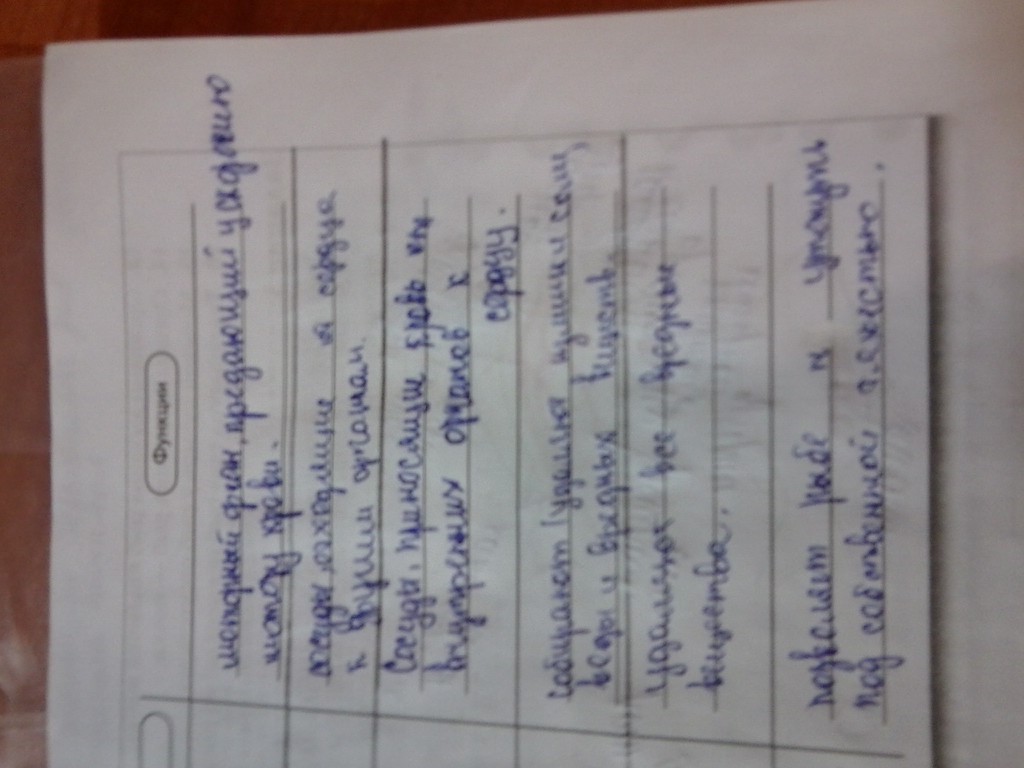 Функции
моторный орган, предающий ускорению
мотору крови.
сосуды, отходящие от сердца
к другим органам.
Сосуды, приносящие кровь
внутренних органов к
сердцу.
собирают (удаляют соли,
воды и вредных веществ.
удаляются все вредные
вещества.
позволяет рыбе н утонуть
под собственной тяжестью.